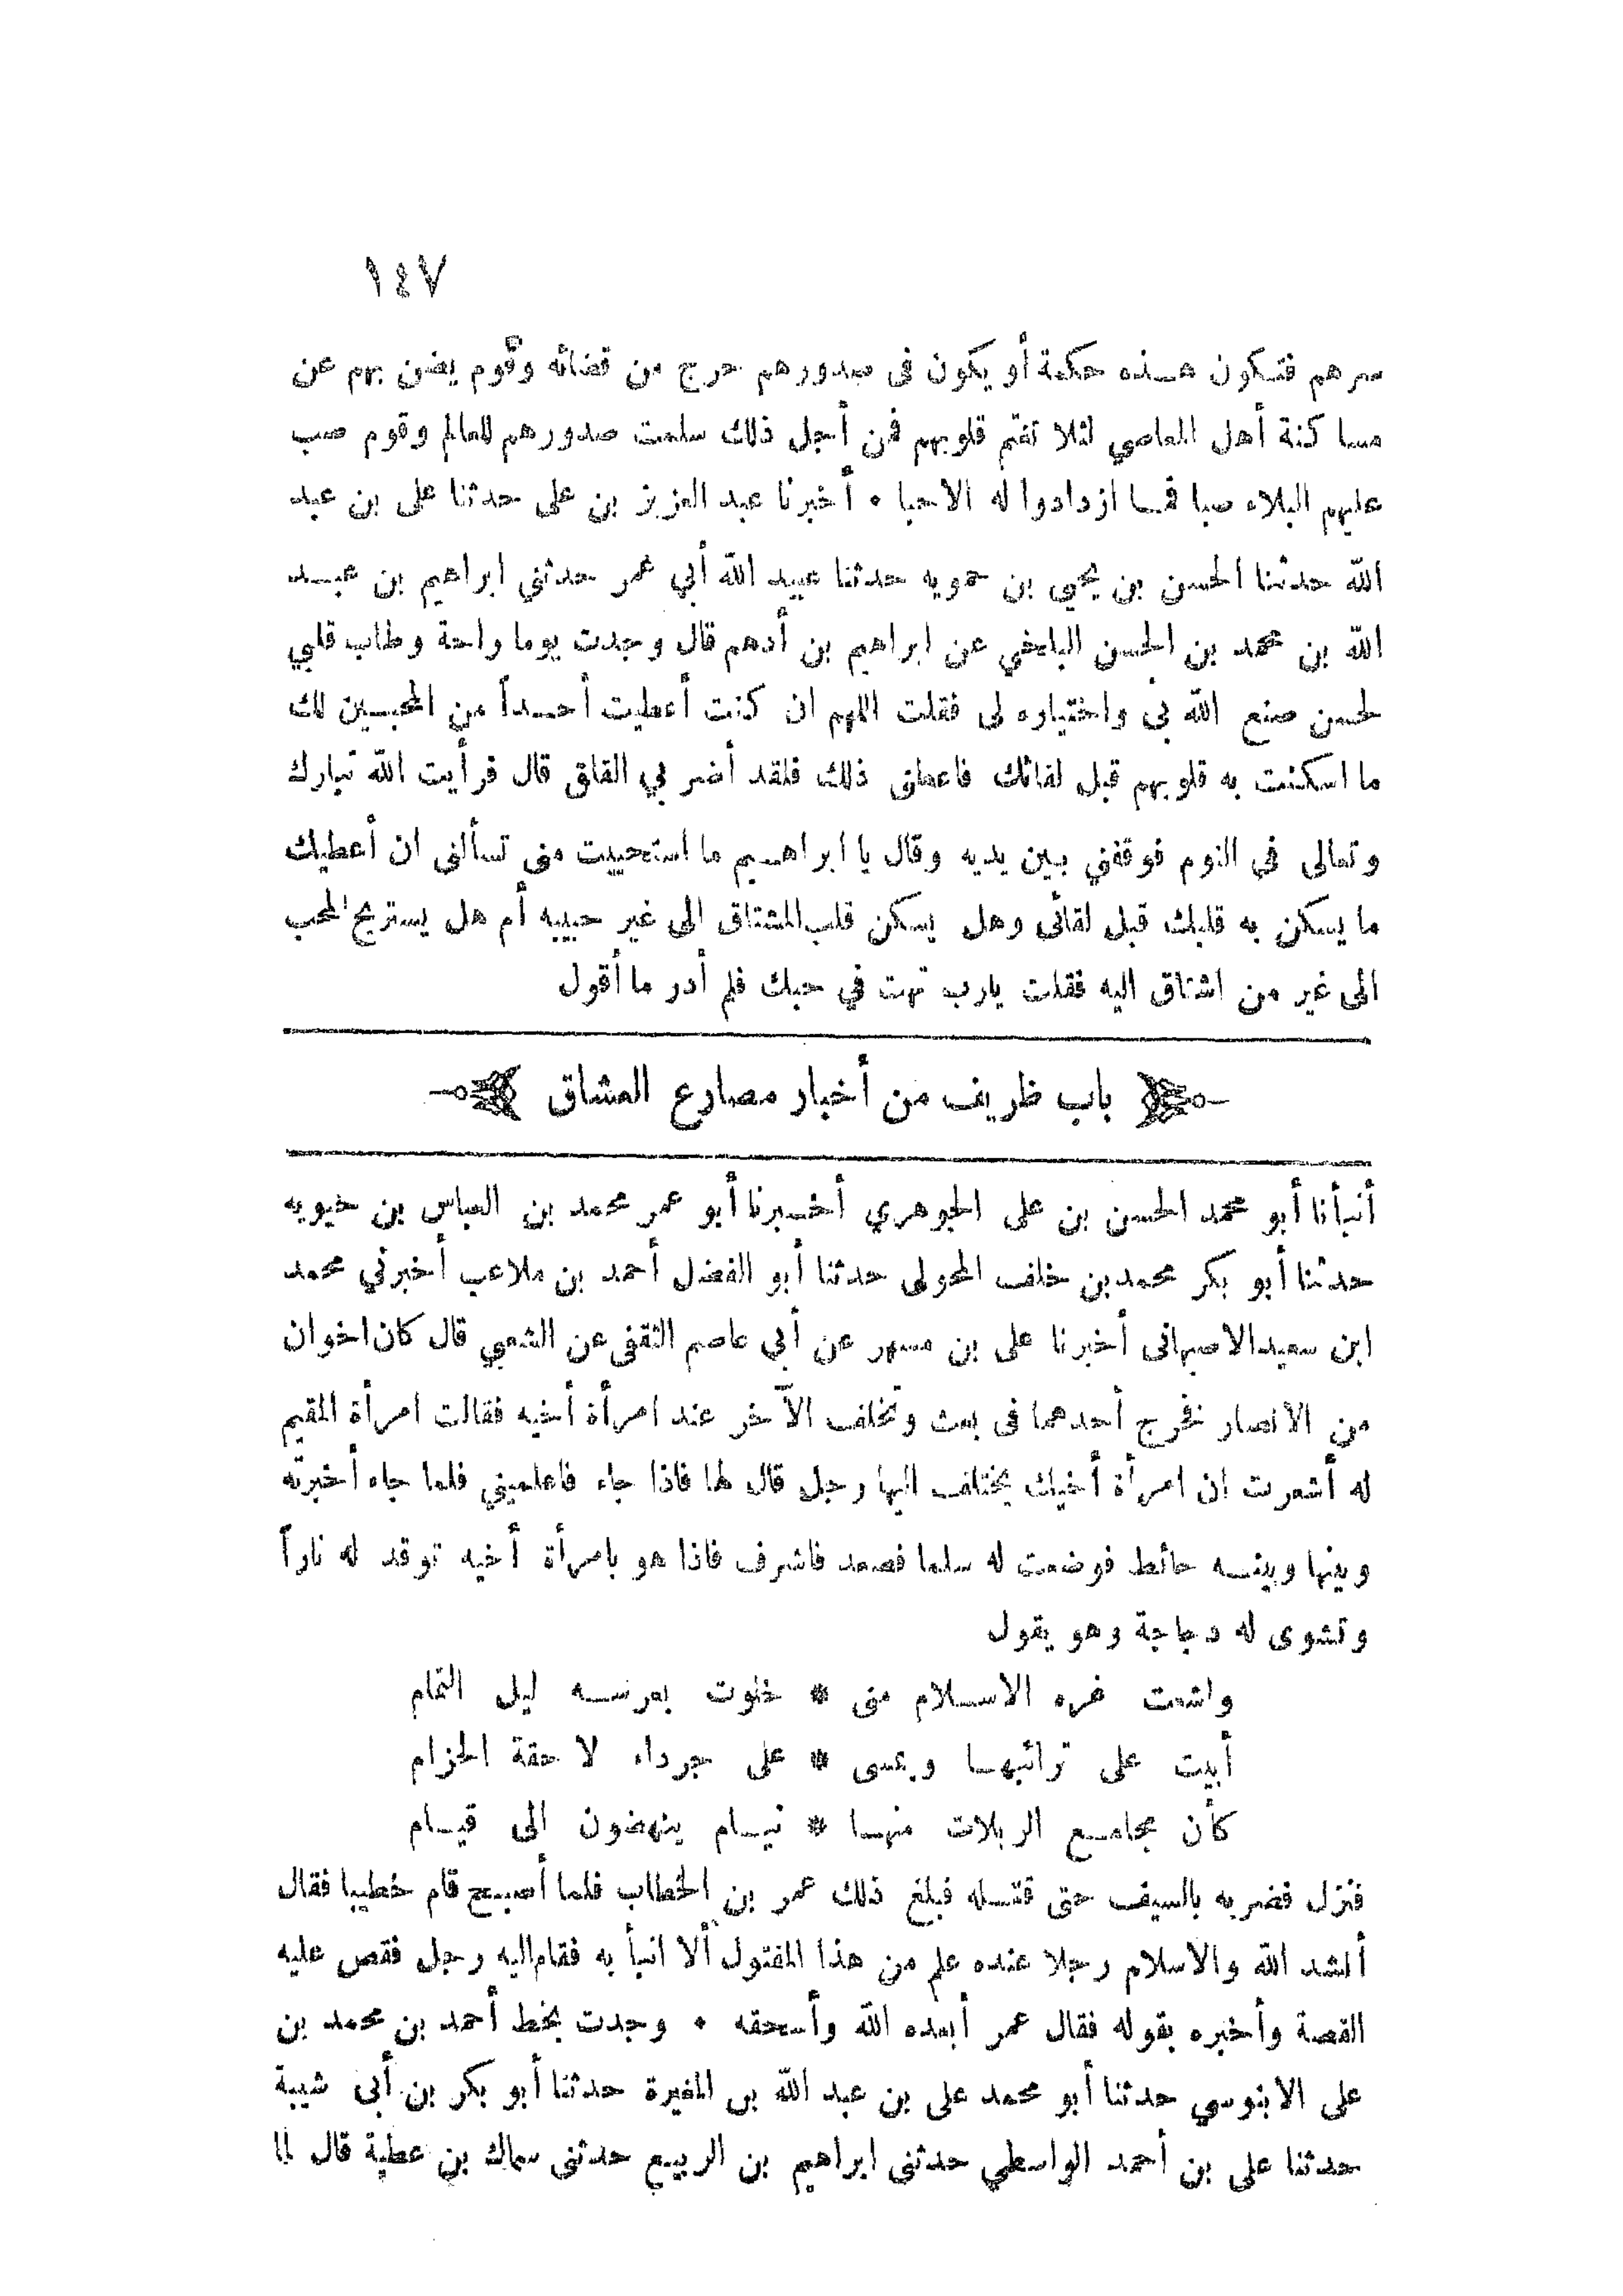 ١٤٧
سرهم فتكون هذه حكمة أو يكون فى صدورهم حرج من قضائه وقوم يضن بهم عن
مساكنة أهل المعاصي لئلا تغتم قلوبهم فمن أجل ذلك سلمت صدورهم للعالم وقوم صب
عليهم البلاء صبا فما ازدادوا له الاحبا • أخبرنا عبد العزيز بن على حدثنا على بن عبد
الله حدثنا الحسن بن يحيى بن حمويه حدثنا عبيد الله أبي عمر حدثني ابراهيم بن عبد
الله بن محمد بن الحسن البلخي عن ابراهيم بن أدهم قال وجدت يوما راحة وطاب قلبي
لحسن صنع الله بى واختياره لى فقلت اللهم ان كنت أعطيت أحداً من المحبين لك
ما اسكنت به قلوبهم قبل لقائك فاعطنى ذلك فلقد أضر بي القلق قال فرأيت الله تبارك
وتعالى في النوم فوقفني بين يديه وقال يا ابراهيم ما استحييت منى تسألنى ان أعطيك
ما يسكن به قلبك قبل لقائى وهل يسكن قلب المشتاق الى غير حبيبه أم هل يستريح المحب
الى غير من اشتاق اليه فقلت يارب تهت في حبك فلم أدر ما أقول
باب ظريف من أخبار مصارع العشاق
أنبأنا أبو محمد الحسن بن على الجوهري أخبرنا أبو عمر محمد بن العباس بن حيويه
حدثنا أبو بكر محمد بن خلف المحولى حدثنا أبو الفضل أحمد بن ملاعب أخبرني محمد
ابن سعيد الاصبهانى أخبرنا على بن مسهر عن أبي عاصم الثقفى عن الشعبي قال كان اخوان
من الانصار فخرج أحدهما فى بعث وتخلف الآخر عند امرأة أخيه فقالت امرأة المقيم
له أشعرت ان امرأة أخيك يختلف اليها رجل قال لها فاذا جاء فاعلميني فلما جاء أخبرته
وبينها وبينه حائط فوضعت له سلما فصعد فاشرف فاذا هو بامرأة أخيه توقد له ناراً
وتشوى له دجاجة وهو يقول
واشعت غره الاسلام منى * خلوت بعرسه ليل التمام
أبيت على ترائبها ويمسى * على جرداء لاحقة الحزام
كأن مجامع الربلات منها * نيام ينهضون الى قيام
فنزل فضربه بالسيف حتى قتله فبلغ ذلك عمر بن الخطاب فلما أصبح قام خطيبا فقال
أنشد الله والاسلام رجلا عنده علم من هذا المقتول ألا انبأ به فقام اليه رجل فقص عليه
القصة وأخبره بقوله فقال عمر أبعده الله وأسحقه • وجدت بخط أحمد بن محمد بن
على الابنوسي حدثنا أبو محمد على بن عبد الله بن المغيرة حدثنا أبو بكر بن أبى شيبة
حدثنا على بن أحمد الواسطي حدثنى ابراهيم بن الربيع حدثنى سماك بن عطية قال لما